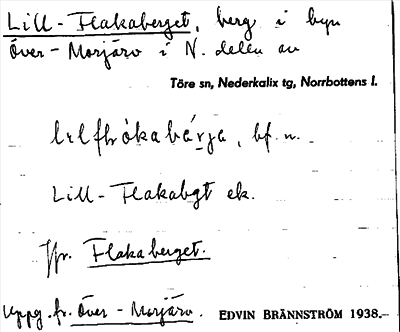 Lill-Flakaberget, berg i byn
Över-Morjärv i N. delen av
Töre sn, Nederkalix tg, Norrbottens l.
bf. n.
Lill-Flakabgt ek.
Jfr. Flakaberget.
Uppg. fr. Över-Morjärv. EDVIN BRÄNNSTRÖM 1938.